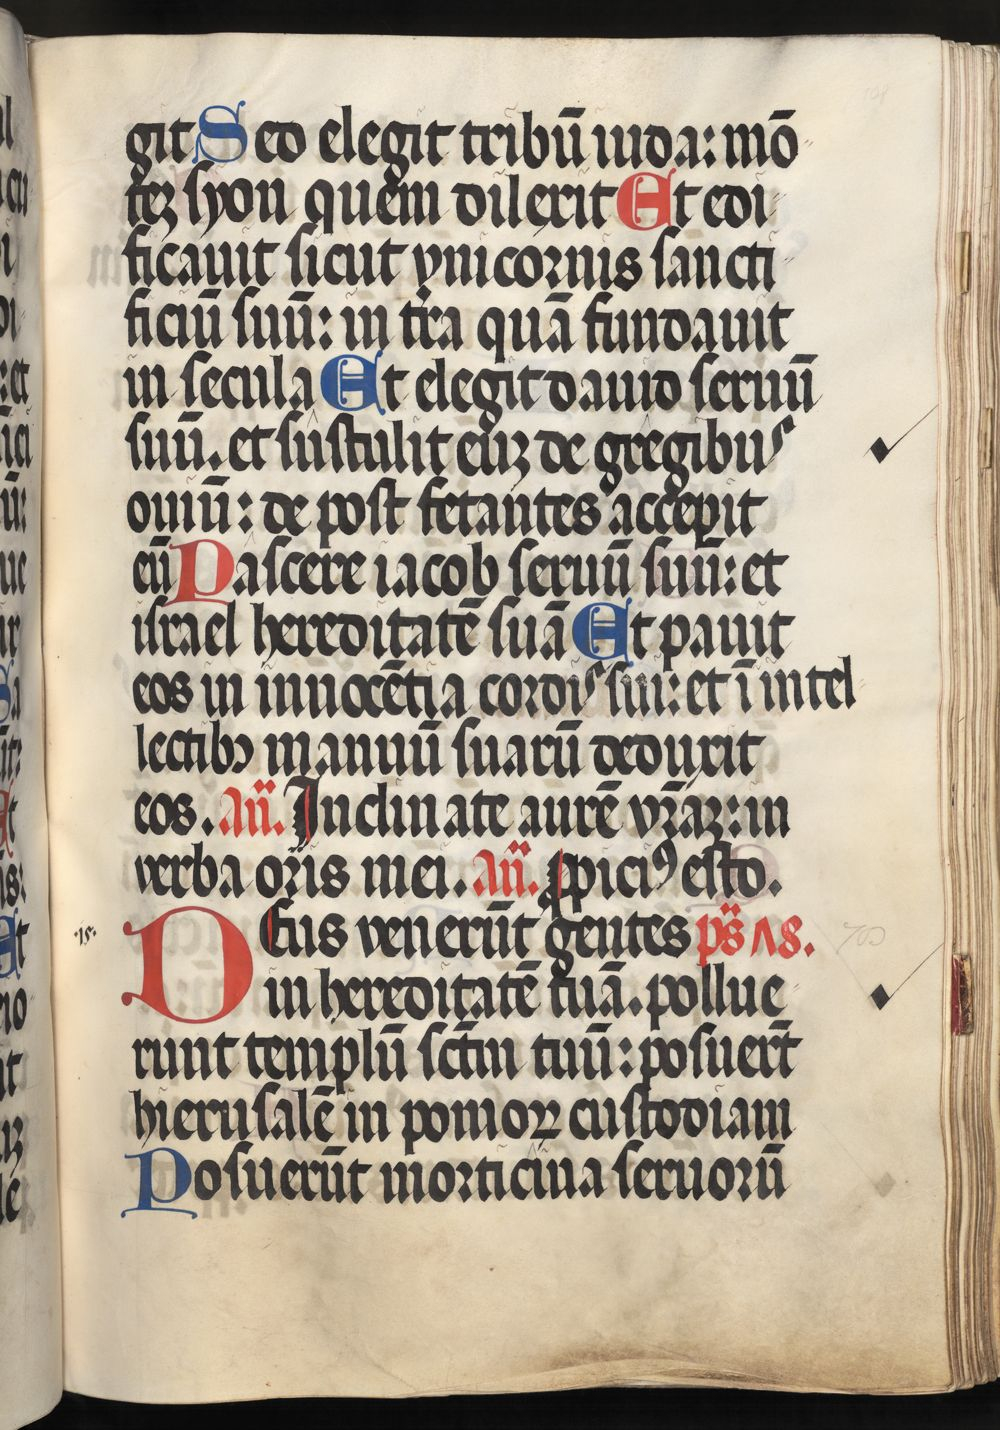 git Sed elegit tribū iuda: mō
teȝ syon quem dilexit Et edi
ficauit sicut vnicornis sancti
ficiū suū: in tr̄a quā fundauit
in secula Et elegit dauid seruū
suū. et sustulit euȝ de gregibus
ouiū: de post fetantes accepit
eū Pascere iacob seruū suū: et
israel hereditatē suā Et pauit
eos in innocēti a cordis sui: et ī intel
lectibꝫ manuū suarū deduxit
eos. Añ. Inclinate aurē vr̄aȝ: in
verba oris mei. Añ. ꝓpiciꝰ esto.
·15· Deus venerūt gentes ps̄ 78.
in hereditatē tuā. pollue
runt templū sctm̄ tuū: posuer̄t
hierusalē in pomoꝝ custodiam
Posuerūt morticina seruorū